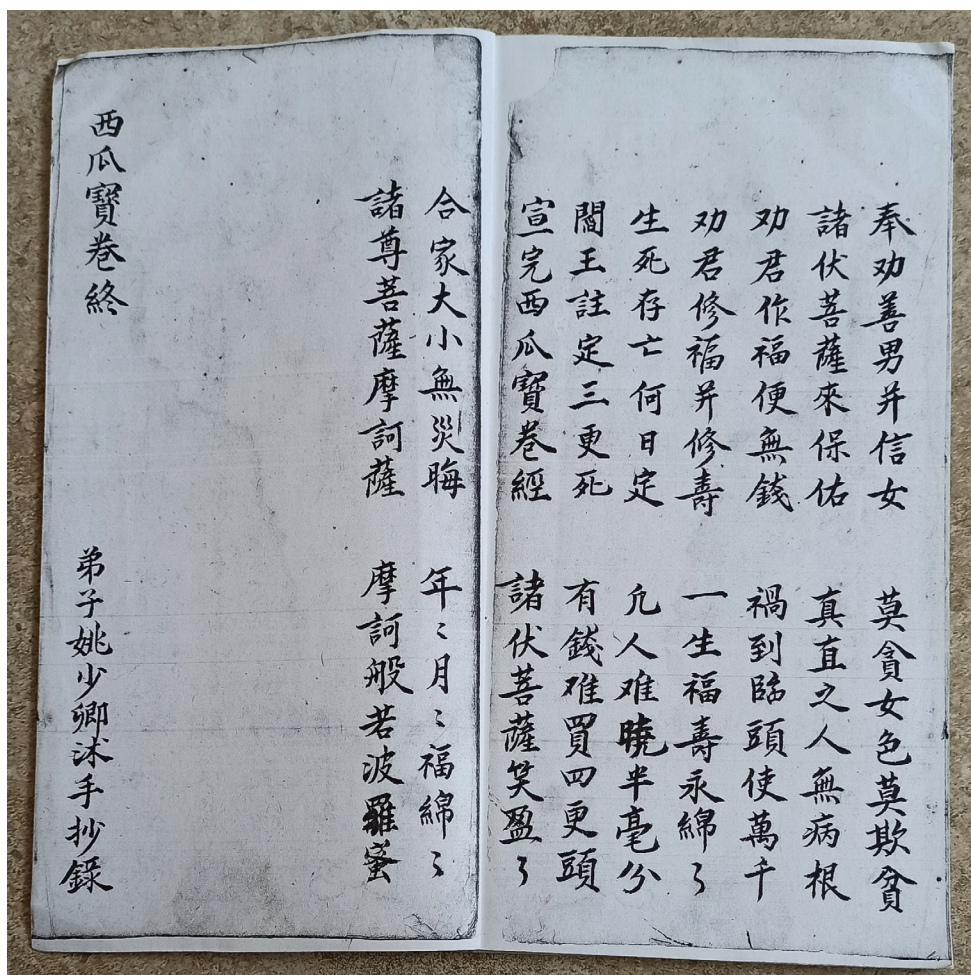 奉劝善男并信女 莫貪女色莫欺貧
諸伏菩薩來保佑 真直之人無病根
劝君作福便無錢 禍到臨頭使萬千
劝君修福并修壽 一生福壽永綿〻
生死存亡何日定 凢人难曉半毫分
閻王註定三更死 有錢难買四更頭
宣完西瓜寶卷經 諸伏菩薩笑盈〻
合家大小無災晦 年〻月〻福綿〻
諸尊菩薩摩訶薩 摩訶般若波羅蜜
西瓜寶卷終
弟子姚少卿沭手抄錄